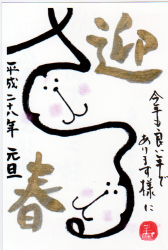 迎春
今年も良い年が
あります様に
平成二十八年 元旦